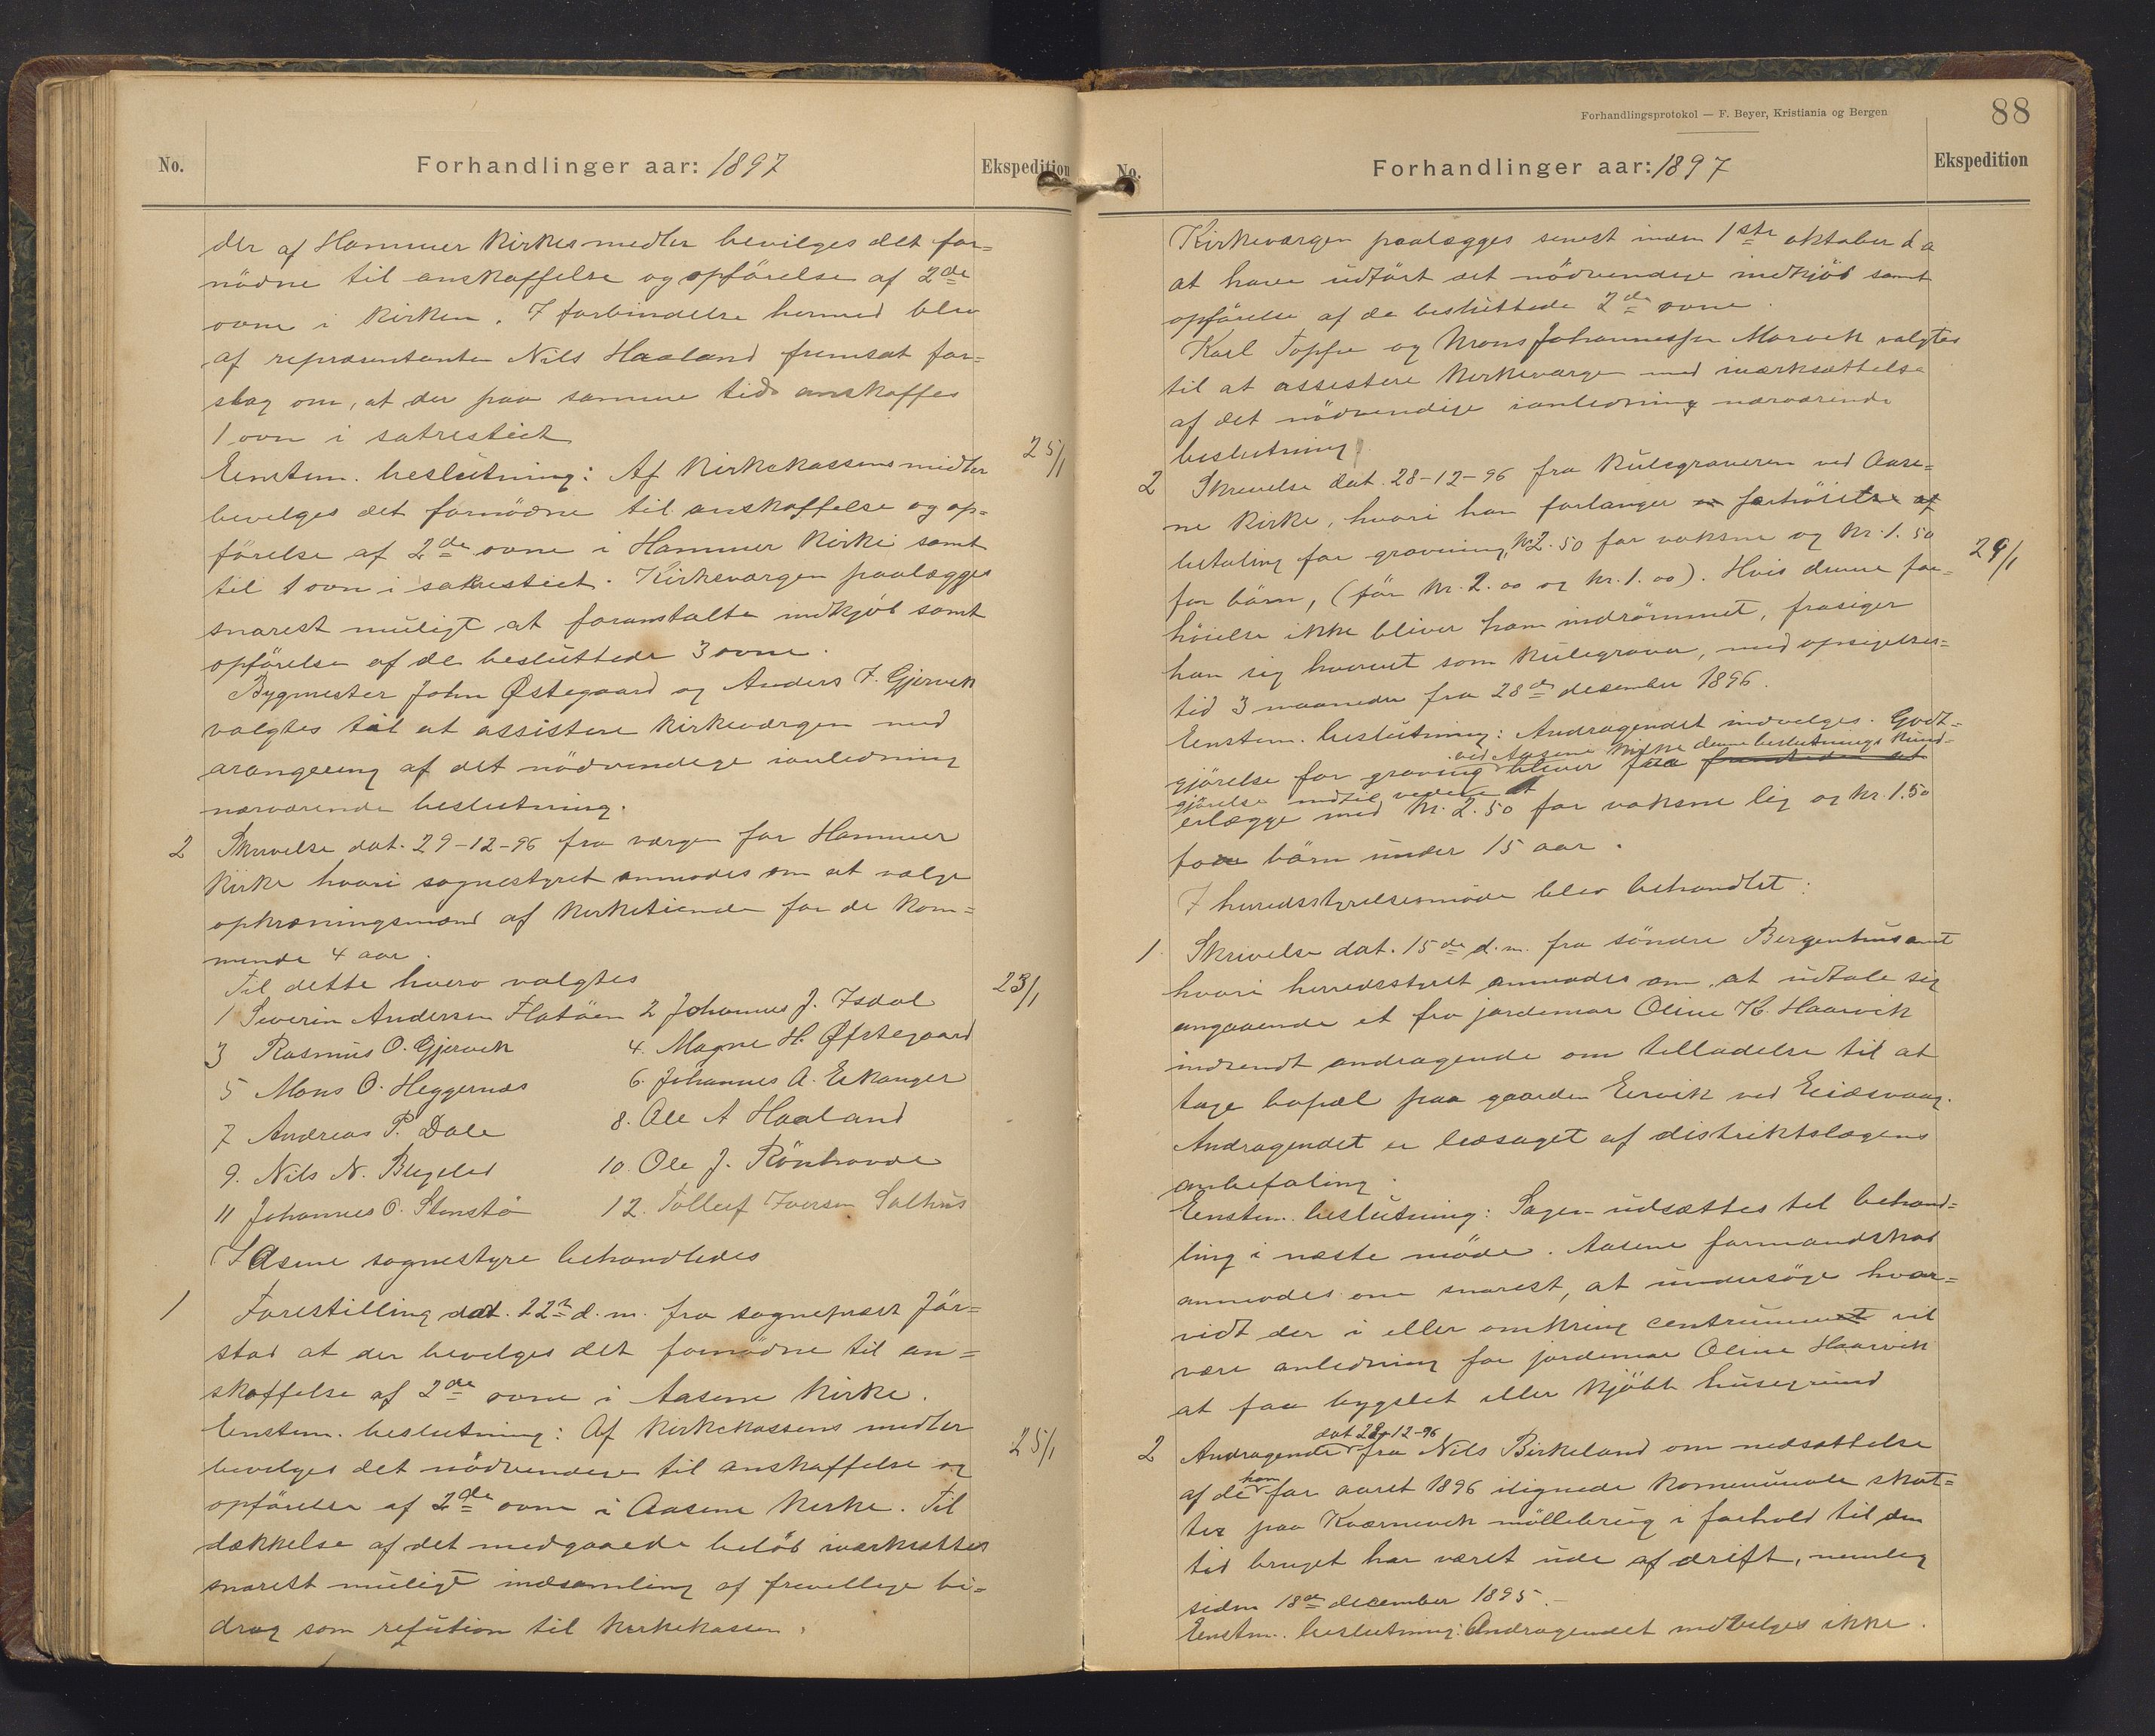 No.
Forhandlinger aar: 1897
Ekspedition
der af Hammer kirkes midler bevilges det for=
nödne til anskaffelse og opförelse af 2de
ovne i kirken. I forbindelse hermed blev
af repræsentanten Nils Haaland fremsat for=
slag om, at der paa samme tid anskaffes
1 ovn i sakrestiet
Eenstem. beslutning: Af kirkekassens midler
25/1
bevilges det fornödne til anskaffelse og op=
förelse af 2de ovne i Hammer kirke samt
til 1 ovn i sakrestiet. Kirkevargen paalægges
snarest muligt at foranstalte indkjöb samt
opförelse af de besluttede 3 ovne.
Bygmester John Østegaard og Anders I. Gjervik
valgtes til at assistere kirkeværgen med
arangering af det nödvendige ianledning
nærværende beslutning.
2 Skrivelse dat. 29-12-96 fra værgen for Hammer
kirke hvori sognestyret anmodes om at vælge
opkrævningsmænd af kirketiende for de kom=
mende 4 aar.
Til dette hverv valgtes
23/1
1 Severin Andersen Flatöen 2 Johannes J. Isdal
3 Rasmus O. Gjervik 4. Magne H. Øfstegaard
5 Mons O. Heggernæs 6. Johannes A. Eikanger
7 Andreas P. Dale 8. Ole A Haaland
9. Nils N. Blegeled 10. Ole J. Rönhovde
11 Johannes O. Stenstö 12. Tollef Iversen Salhus
I Asene sognestyre behandledes
1 Forestilling dat. 22de d. m. fra sogneprest Jör=
stad at der bevilges det fornödne til an=
skaffelse af 2de ovne i Aasene kirke.
Eenstem. beslutning: Af kirkekassens midler
25/1
bevilges det nödvendige til anskaffelse og
opförelse af 2de ovne i Aasene kirke. Til
dækkelse af det medgaaede belöb iværksættes
snarest muligt indsamling af frivillige bi=
drag som refution til kirkekassen.
Forhandlingsprotokol — F. Beyer, Kristiania og Bergen
88
No.
Forhandlinger aar: 1897
Ekspedition
Kirkeværgen paalægges senest inden 1ste oktober d a
at have udfört det nödvendige indkjöb samt
opförelse af de besluttede 2de ovne.
Karl Toppe og Mons Johannessen Morvik valgtes
til at assistere kirkeværgen med iværksættelse
af det nödvendige ianledning nærværende
beslutning
2 Skrivelse dat. 28-12-96 fra kulegraveren ved Aase=
ne kirke, hvori han forlanger en forhöielse af
betaling for gravning, kr. 2.50 for voksne og kr. 1.50
29/1
for börn, (för kr. 2.00 og kr. 1.00). Hvis denne for=
höielse ikke bliver ham indrömmet, frasiger
han sig hvervet som kulegraver, med opsigelses=
tid 3 maaneder fra 28de desember 1896.
Eenstem. beslutning: Andragendet indvilges. Godt=
ved Aasene kirke denne beslutnings kund=
gjörelse for graving bliver fra fremtiden at
gjörelse indtil videre at
erlægge med kr. 2.50 for voksne lig og kr. 1.50
for börn under 15 aar.
I herredsstyrelsesmöde blev behandlet:
1. Skrivelse dat. 15de d. m. fra söndre Bergenhus amt
hvori herredsstyret anmodes om, at udtale sig
angaaende et fra jordemor Oline K. Haarvik
indsendt andragende om tilladelse til at
tage bopæl paa gaarden Eervik ved Eidsvaag.
Andragendet er ledsaget af distriktslægens
anbefaling.
Eenstem. beslutning: Sagen udsættes til behand=
ling i næste möde. Aasene formandskab
anmodes om snarest, at undersöge hvor=
vidt der i eller omkring centrummet vil
være anledning for jordemor Oline Haarvik
at faa bygslet eller kjöbt husegrund
dat 28-12-96
2 Andragende fra Nils Birkeland om nedsættelse
ham
af de for aaret 1896 ilignede kommunale skat=
ter paa Kværnevik möllebrug i forhold til den
tid bruget har været ude af drift, nemlig
siden 18de december 1895.-
Eenstem. beslutning: Andragendet indvilges ikke.